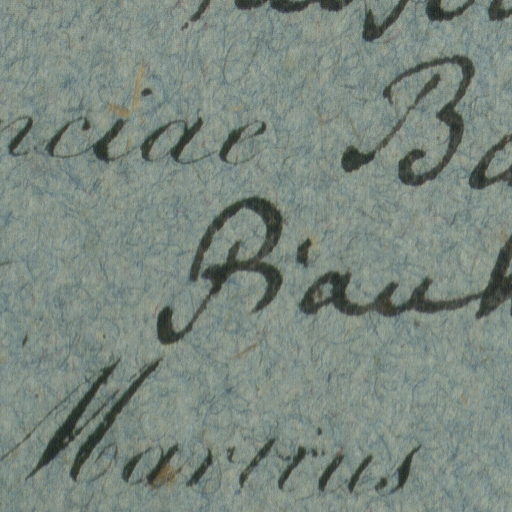 nciae Ba
Piauh
Martius